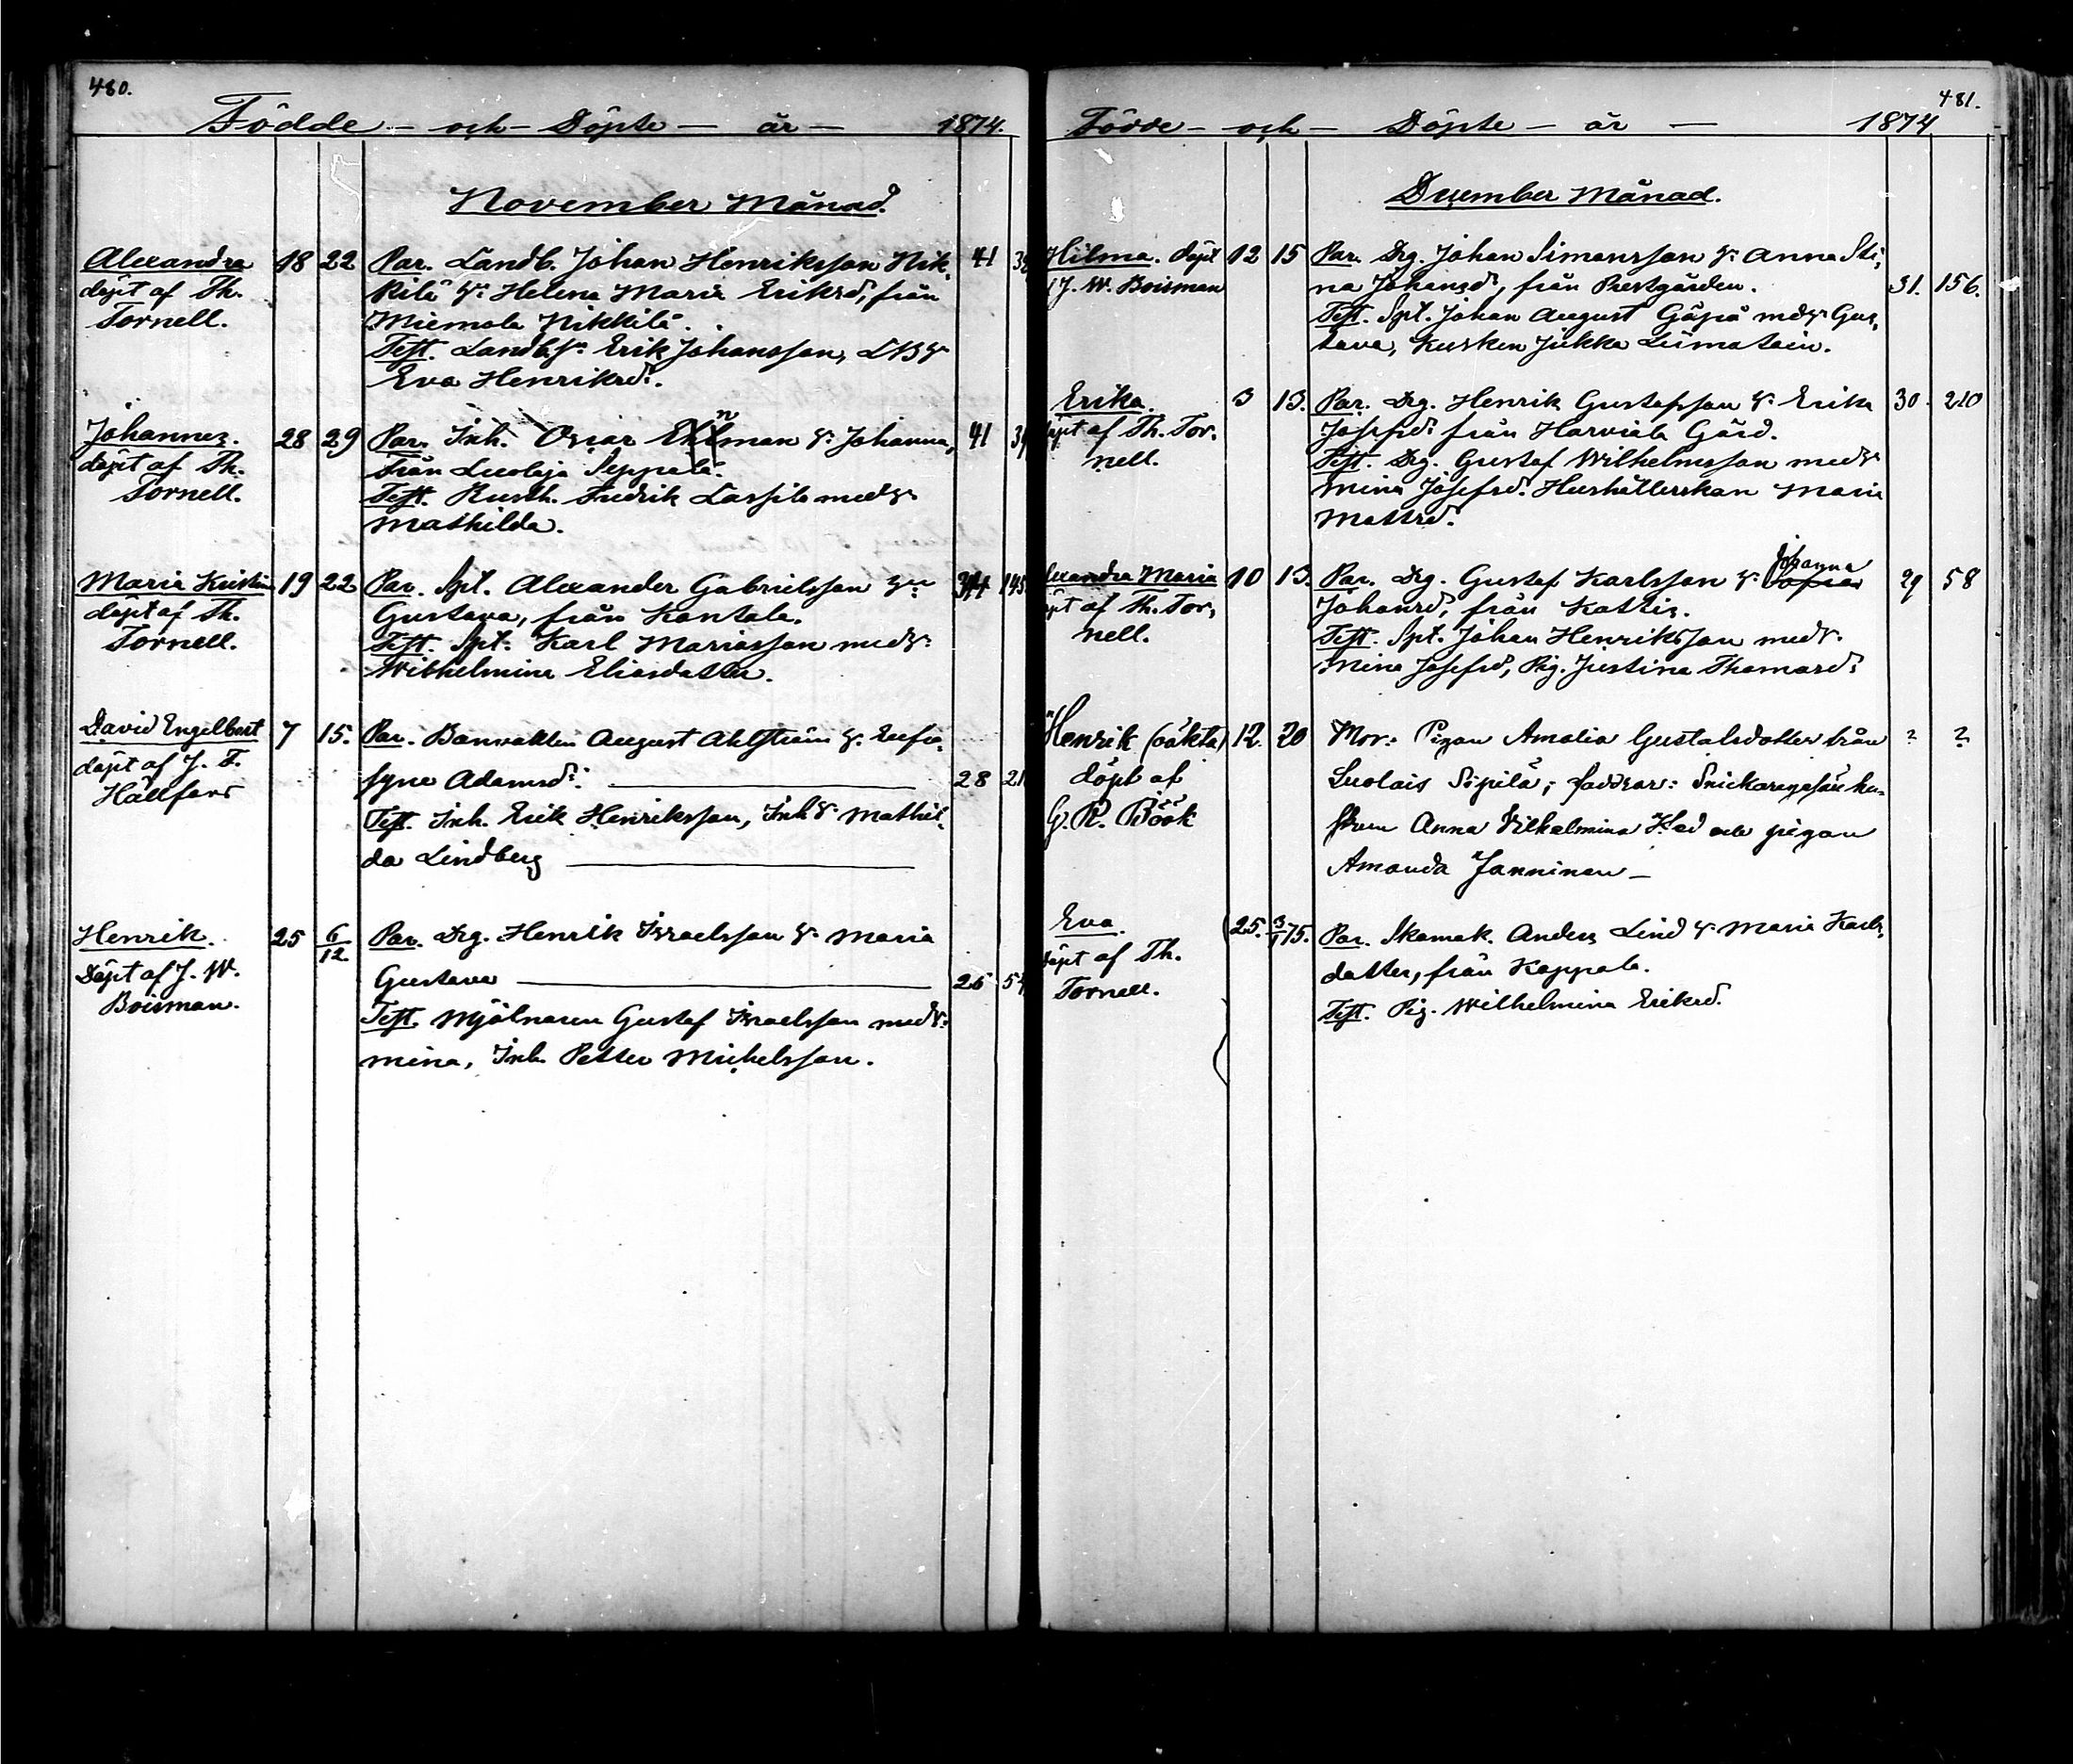 480.
Födde – och – Döpte – år – 1874.
November Månad.
Alexandra 18 22 Par. Landb. Johan Henriksson Nik- 41
döpt af Th. kilä h. Helena Maria Eriksd., från
Tornell. Miemola Nikkilä.
Test. Landb.sn Erik Johansson,
Eva Henriksd.
Johannes. 28 29 Par. Inh. Oscar Ehnman h. Johanna, 41
döpt af Th. från Luolaja Seppälä.
Tornell. Test. Rusth. Fredrik Lassila med h.
Mathilda.
Maria Kristina 19 22 Par. Spt. Alexander Gabrielsson h. 34 145
döpt af Th. Gustava, från Kantala.
Tornell. Test. Spt. Karl Mariasson med h.
Wilhelmina Eliasdatter.
David Engelbert 7 15. Par. Banvakten August Ahlström h. Eufro-
döpt af J. F. syne Adamsd. 28 21
Hällfors Test. Inh. Erik Henriksson, Inh h. Mathil-
da Lindberg
Henrik. 25 6/12. Par. Drg. Henrik Israelsson h. Maria
Döpt af J. W. Gustava 26 54
Boisman. Test. Mjölnaren Gustaf Israelsson med h.
Mina, Inh. Petter Michelsson.
481.
Födde – och – Döpte – år – 1874
December Månad.
Hilma. döpt 12 15 Par. Drg. Johan Simonsson h. Anna Sti-
J. W. Boisman na Johansd., från Prestgården. 31. 156.
Test. Spt. Johan August Gäpä med h. Gus-
tava, Kusken Jukka Liimatain.
Erika. 3 13. Par. Drg. Henrik Gustafsson h. Erika 30. 210
döpt af Th. Tor- Josefsd. från Harviala Gård.
nell. Test. Drg. Gustaf Wilhelmsson med h.
Mina Josefsd. Hushållerskan Maria
Mattsd.
Alexandra Maria 10 13. Par. Drg. Gustaf Karlsson h. Johanna Sofia 29 58
döpt af Th. Tor- Johansd., från Kattis.
nell. Test. Spt. Johan Henriksson med h.
Mina Josefsd, Pig. Justina Thomasd.
Henrik (oäkta) 12. 20 Mor: Pigan Amalia Gustafsdotter från ? ?
döpt af Luolais Sipilä; faddrar:
G. R. Böök Anna Vilhelmina Hed och pigan
Amanda Janninen –
Eva. 25. 3/1 75. Par. Skomak. Anders Lind h. Maria Karls-
döpt af Th. datter, från Kappola.
Tornell. Test. Pig. Wilhelmina Eriksd.